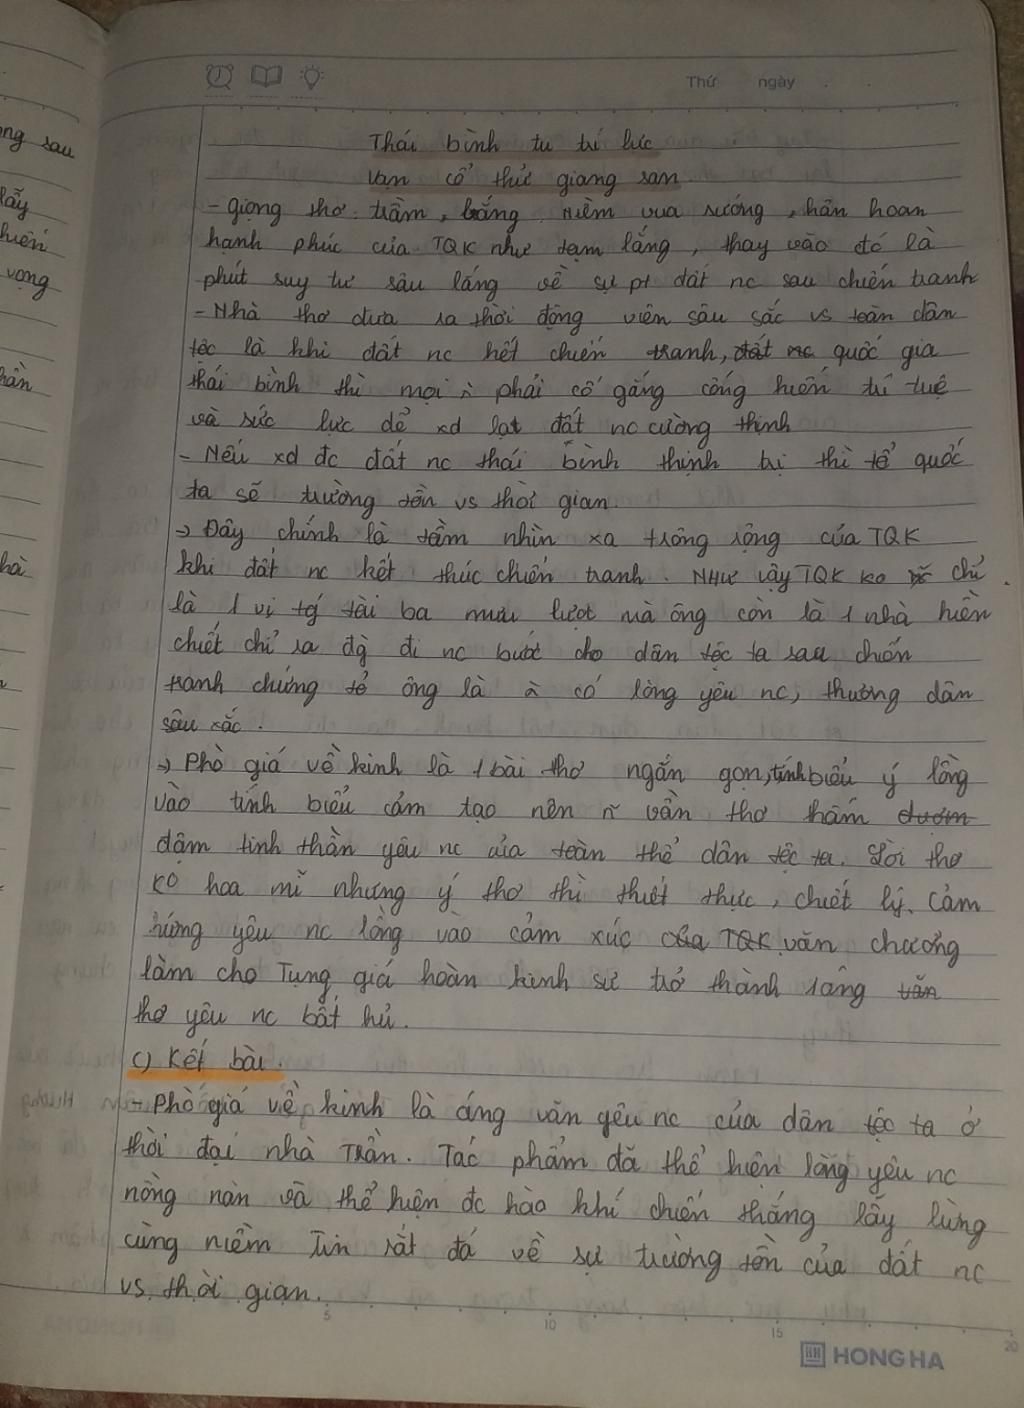 ng sau
lấy
hiến
vọng
hần
hà
Thứ ngày
Thái bình tu trí lực
Vạn cổ thử giang san
- Giọng thơ trầm, lắng. Niềm vui sướng, hân hoan
hạnh phúc của TQK như tạm lắng, thay vào đó là
phút suy tư sâu lắng về sự pt đất nc sau chiến tranh
- Nhà thơ đưa ra thời động viên sâu sắc vs toàn dân
tộc là khi đất nc hết chiến tranh, đất nc quốc gia
thái bình thì mọi ng phải cố gắng cống hiến trí tuệ
và sức lực để xd lại đất nc cường thịnh
- Nếu xd đc đất nc thái bình thịnh trị thì tổ quốc
ta sẽ trường tồn vs thời gian.
→ Đây chính là tầm nhìn xa trông rộng của TQK
khi đất nc kết thúc chiến tranh. Như vậy TQK ko chỉ
là 1 vị tg tài ba mưu lược mà ông còn là 1 nhà hiền
chiết chỉ ra đg đi nc bước cho dân tộc ta sau chiến
tranh chứng tỏ ông là có lòng yêu nc, thương dân
sâu xắc.
→ Phò giá về kinh là 1 bài thơ ngắn gọn, tính biểu ý lồng
vào tính biểu cảm tạo nên vần thơ thấm đượm
đậm tinh thần yêu nc của toàn thể dân tộc ta. Lời thơ
ko hoa mĩ nhưng ý thơ thì thiết thực, chiết lý. Cảm
hứng yêu nc lồng vào cảm xúc của TQK văn chương
làm cho Tụng giá hoàn kinh sư trở thành áng văn
thơ yêu nc bất hủ.
c) Kết bài.
- Phò giá về kinh là áng văn yêu nc của dân tộc ta ở
thời đại nhà Trần. Tác phẩm đã thể hiện lòng yêu nc
nồng nàn và thể hiện đc hào khí chiến thắng lẫy lừng
cùng niềm tin sắt đá về sự trường tồn của đất nc
vs thời gian.
5 10 15 20
HONG HA